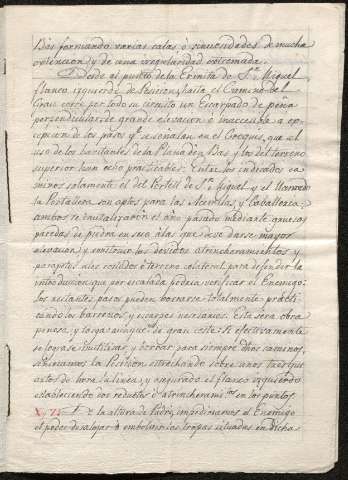 Bas formando varias calas ó sinuosidades de mucha
extencion y de una irregularidad extremada.
Desde el punto de la Ermita de S.n Miguel
flanco izquierdo de Posicion, hasta el Camino del
Grau corre por todo su circuito un Escarpado de peña
perpendicular, de grande elevacion é inaccesible a ex-
cepcion de los pasos q.e se señalan en el Croquis, que el
uso de los habitantes de la Plana de Bas y los del terreno
superior han echo practicables. Entre los indicados ca-
minos solamente el del Portell de S.n Miguel y el llamado
la Portadera son aptos para las Acemilas y Caballeria
ambos se inutilizaron el año pasado mediante gruesas
paredes de piedra en seco á las que deve darse mayor
elevacion y construir los devidos atrincheramientos y
parapetos á los costados ó terreno colateral para defender la
introduccion que por escalada podria verificar el Enemigo:
los restantes pasos pueden borrarse totalmente practi-
cando los barrenos y escarpes necesarios. Esta sera obra
penosa, y larga aunque no de gran coste: Si efectivamente
se lograse inutilizar y borrar para siempre dhos caminos,
subieramos la Posicion estrechando sobre unos tres qu-
artos de hora la linea, y asegurado el flanco izquierdo
estableciendo dos reductos ó atrincheram.tos en los puntos
X y Z de la altura de Padró, impediriamos al Enemigo
el poder desalojar ó embolver las tropas situadas en dicha